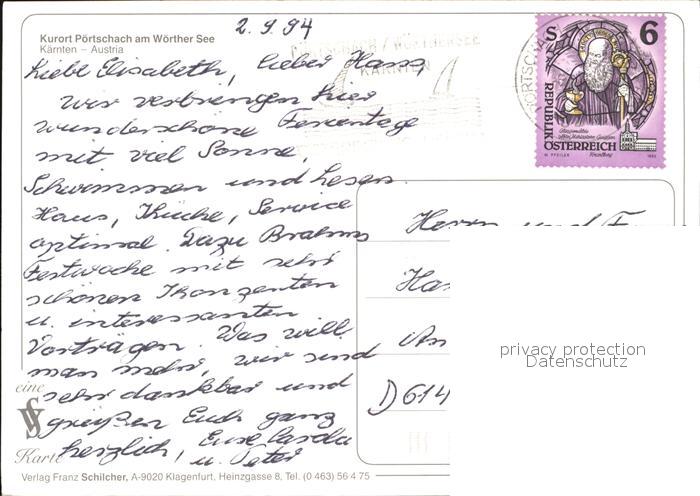 Kurort Pörtschach am Wörther See
Kärnten – Austria
2.9.94
PÖRTSCHACH / WÖRTHERSEE
KÄRNTEN
S 6
REPUBLIK
ÖSTERREICH
Liebe Elisabeth, lieber Hans,
wir verbringen hier
wunderschöne Ferientage
mit viel Sonne,
Schwimmen und Lesen.
Haus, Küche, Service
optimal. Dazu Brahms
Festwoche mit sehr
schönen Konzerten
u. interessanten
Vorträgen. Was will
man mehr, wir sind
sehr dankbar und
grüßen Euch ganz
herzlich, Eure
u. Peter
Herrn und
An
D 614
privacy protection
Datenschutz
eine
Karte
Verlag Franz Schilcher, A-9020 Klagenfurt, Heinzgasse 8, Tel. (0 463) 56 4 75